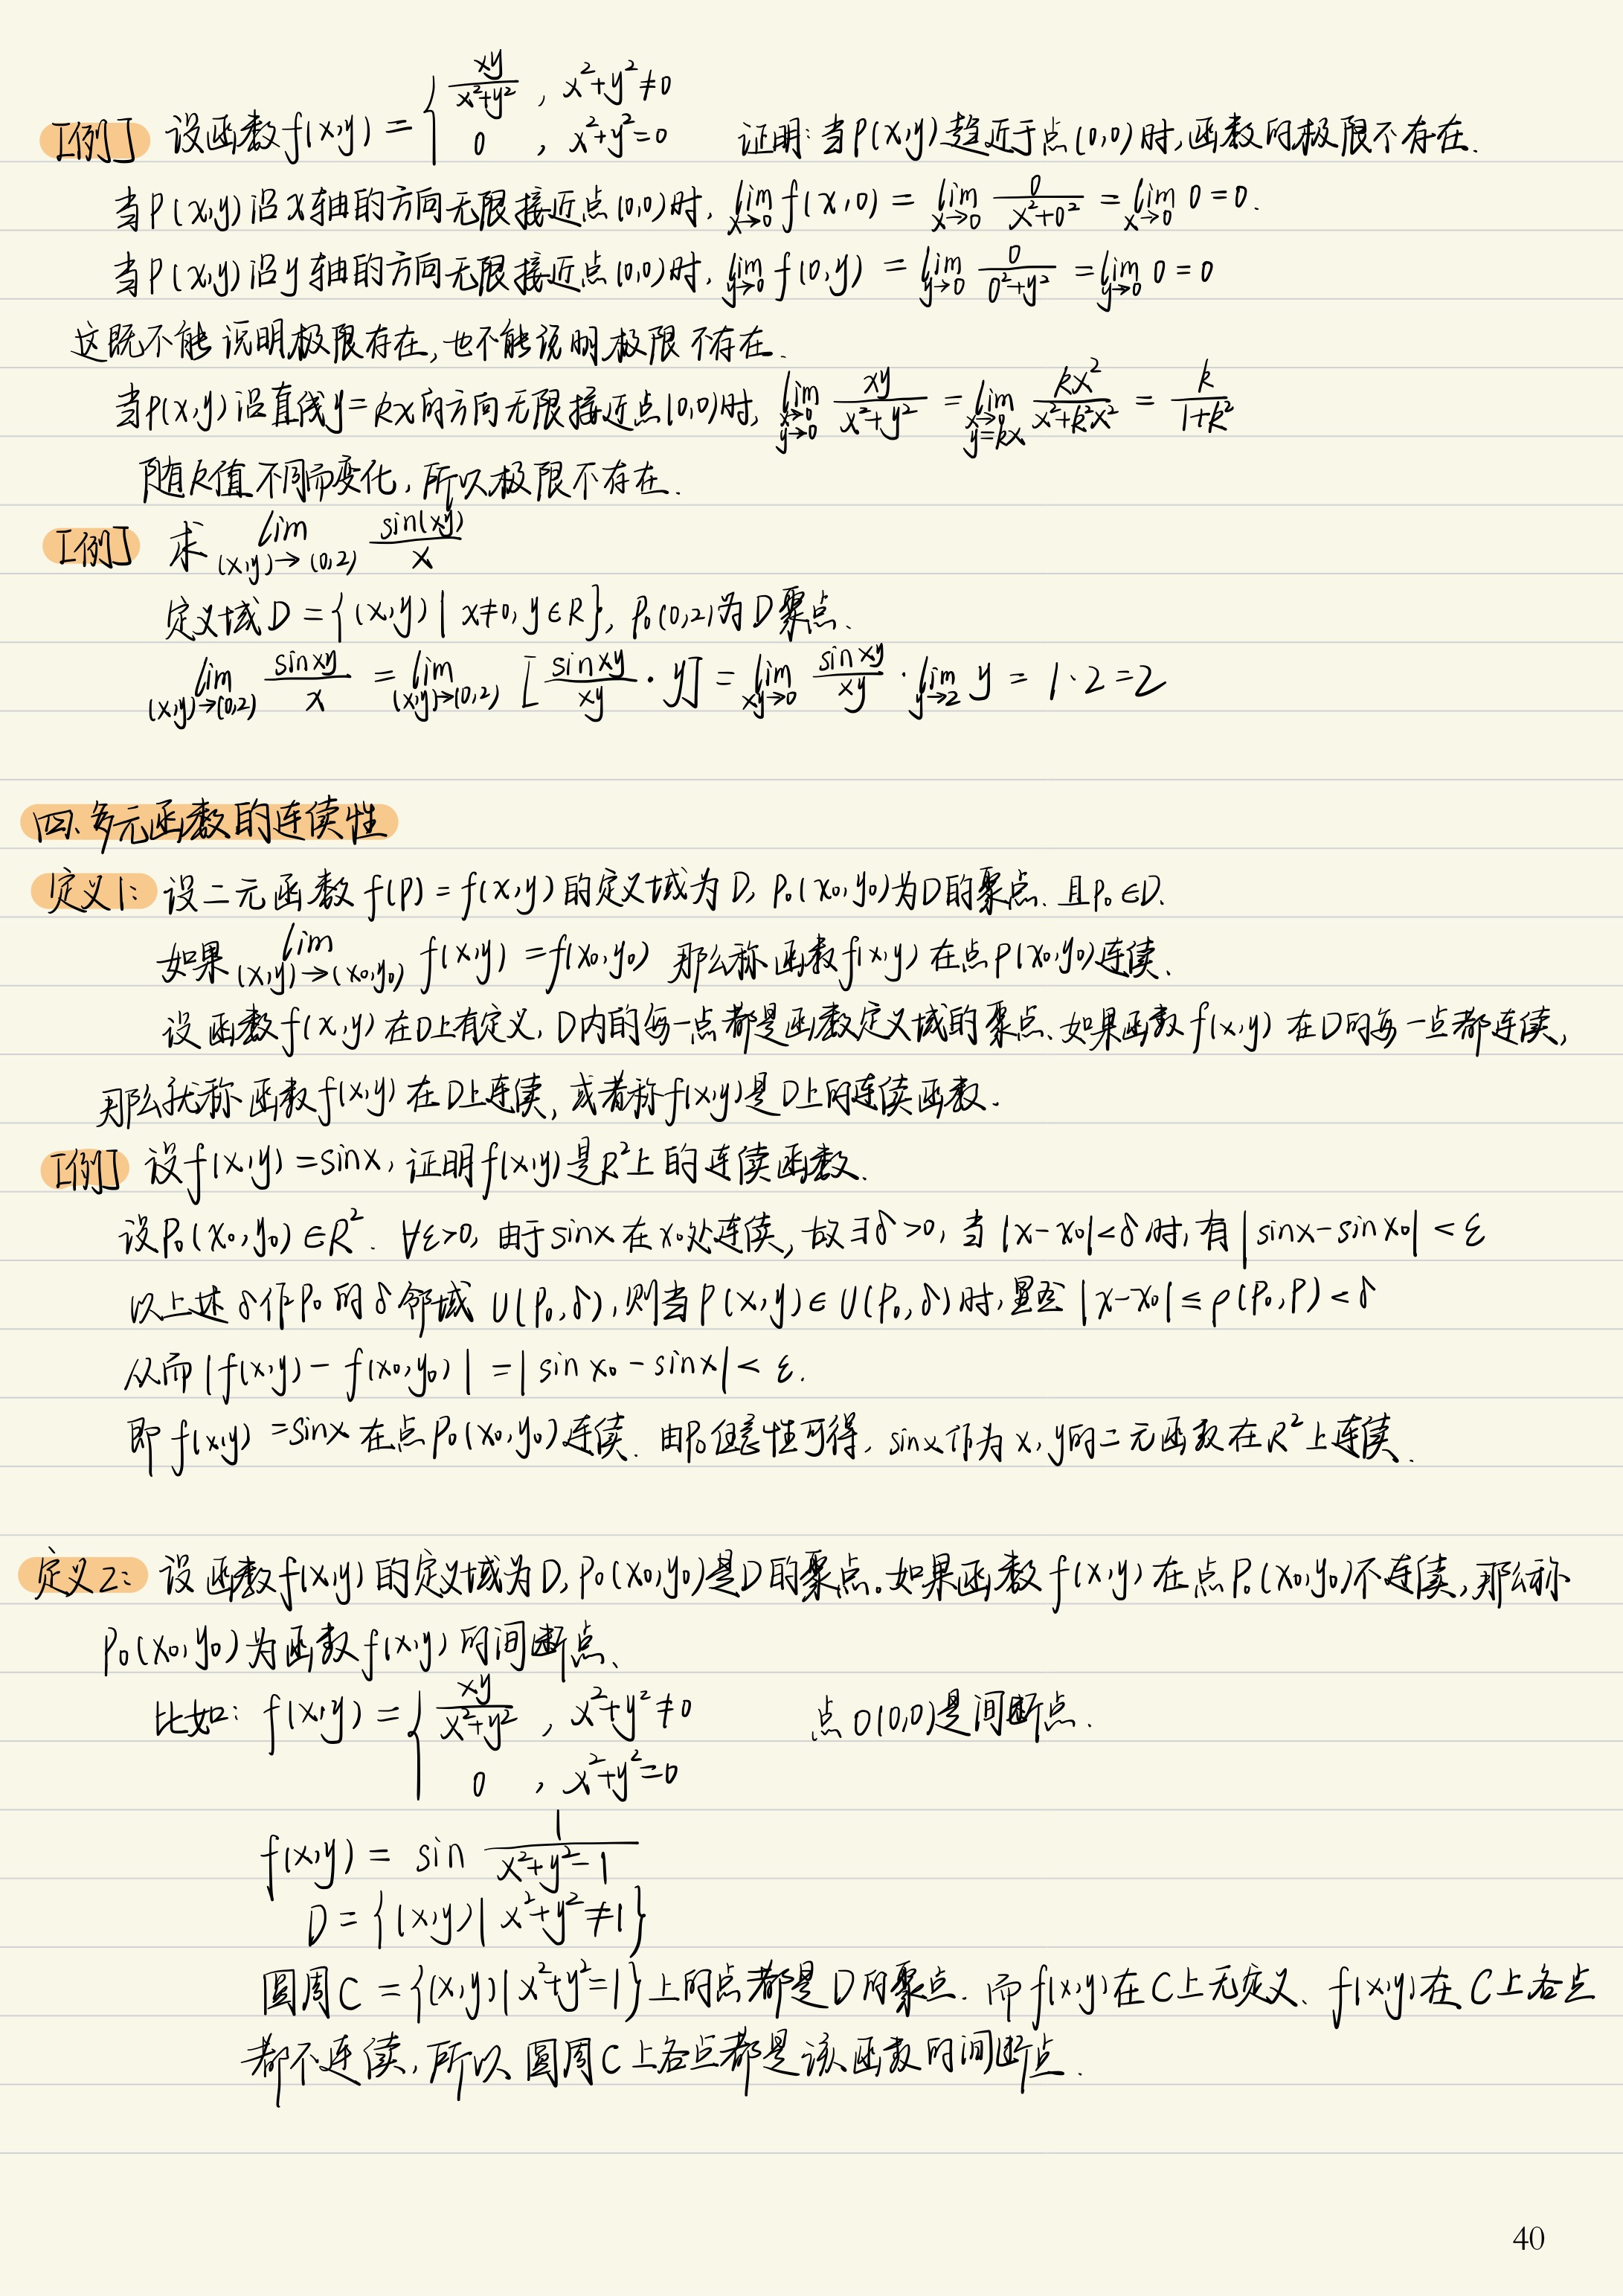 [例] 设函数 f(x,y) = { xy/(x²+y²) , x²+y²≠0 ; 0 , x²+y²=0 证明: 当P(x,y)趋近于点(0,0)时,函数的极限不存在.
当P(x,y)沿x轴的方向无限接近点(0,0)时, lim_{x→0} f(x,0) = lim_{x→0} 0/(x²+0²) = lim_{x→0} 0 = 0.
当P(x,y)沿y轴的方向无限接近点(0,0)时, lim_{y→0} f(0,y) = lim_{y→0} 0/(0²+y²) = lim_{y→0} 0 = 0
这既不能说明极限存在,也不能说明极限不存在.
当P(x,y)沿直线y=kx的方向无限接近点(0,0)时, lim_{x→0 y→0} xy/(x²+y²) = lim_{x→0 y=kx} kx²/(x²+k²x²) = k/(1+k²)
随k值不同而变化,所以极限不存在.
[例] 求 lim_{(x,y)→(0,2)} sin(xy)/x
定义域D={(x,y)| x≠0, y∈R}, P₀(0,2)为D聚点.
lim_{(x,y)→(0,2)} sinxy/x = lim_{(x,y)→(0,2)} [sinxy/xy · y] = lim_{xy→0} sinxy/xy · lim_{y→2} y = 1·2 = 2
四、多元函数的连续性
定义1: 设二元函数 f(P) = f(x,y) 的定义域为D, P₀(x₀,y₀)为D的聚点. 且P₀∈D.
如果 lim_{(x,y)→(x₀,y₀)} f(x,y) = f(x₀,y₀) 那么称函数f(x,y)在点P(x₀,y₀)连续.
设函数f(x,y)在D上有定义, D内的每一点都是函数定义域的聚点.如果函数f(x,y)在D的每一点都连续,
那么就称函数f(x,y)在D上连续,或者称f(x,y)是D上的连续函数.
[例] 设f(x,y)=sinx, 证明f(x,y)是R²上的连续函数.
设P₀(x₀,y₀)∈R². ∀ε>0, 由于sinx在x₀处连续,故∃δ>0, 当|x-x₀|<δ时,有|sinx-sinx₀|<ε
以上述δ作P₀的δ邻域 U(P₀,δ),则当P(x,y)∈U(P₀,δ)时,显然|x-x₀|≤ρ(P₀,P)<δ
从而|f(x,y)-f(x₀,y₀)| = |sinx₀-sinx|<ε.
即 f(x,y)=sinx在点P₀(x₀,y₀)连续. 由P₀任意性可得, sinx作为x,y的二元函数在R²上连续.
定义2: 设函数f(x,y)的定义域为D, P₀(x₀,y₀)是D的聚点。如果函数f(x,y)在点P₀(x₀,y₀)不连续,那么称
P₀(x₀,y₀)为函数f(x,y)的间断点.
比如: f(x,y) = { xy/(x²+y²) , x²+y²≠0 ; 0 , x²+y²=0 点O(0,0)是间断点.
f(x,y) = sin 1/(x²+y²-1)
D={(x,y)| x²+y²≠1}
圆周C={(x,y)|x²+y²=1}上的点都是D的聚点. 而f(x,y)在C上无定义、f(x,y)在C上各点
都不连续,所以圆周C上各点都是该函数的间断点.
40